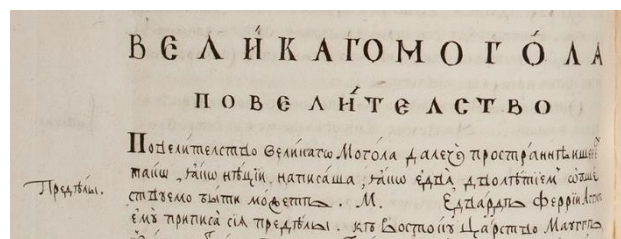 ВЕЛИ́КАГО МОГО́ЛА
ПОВЕЛИ́ТЕЛСТВО
Повели́телство Вели́каго Мого́ла далече простра́ннѣишее
та́кѡ, ꙗ́кѡ нѣ́цїи, написа́ша, ꙗ́кѡ едва̀ дволѣ́тїемъ
Предѣ́лы.
ствуемо бы́ти мо́жетъ. М. Едва́рдъ Ферри́й
ему̀ приписа̀ сїѧ̀ предѣ́лы. къ Восто́ку Ца́рство